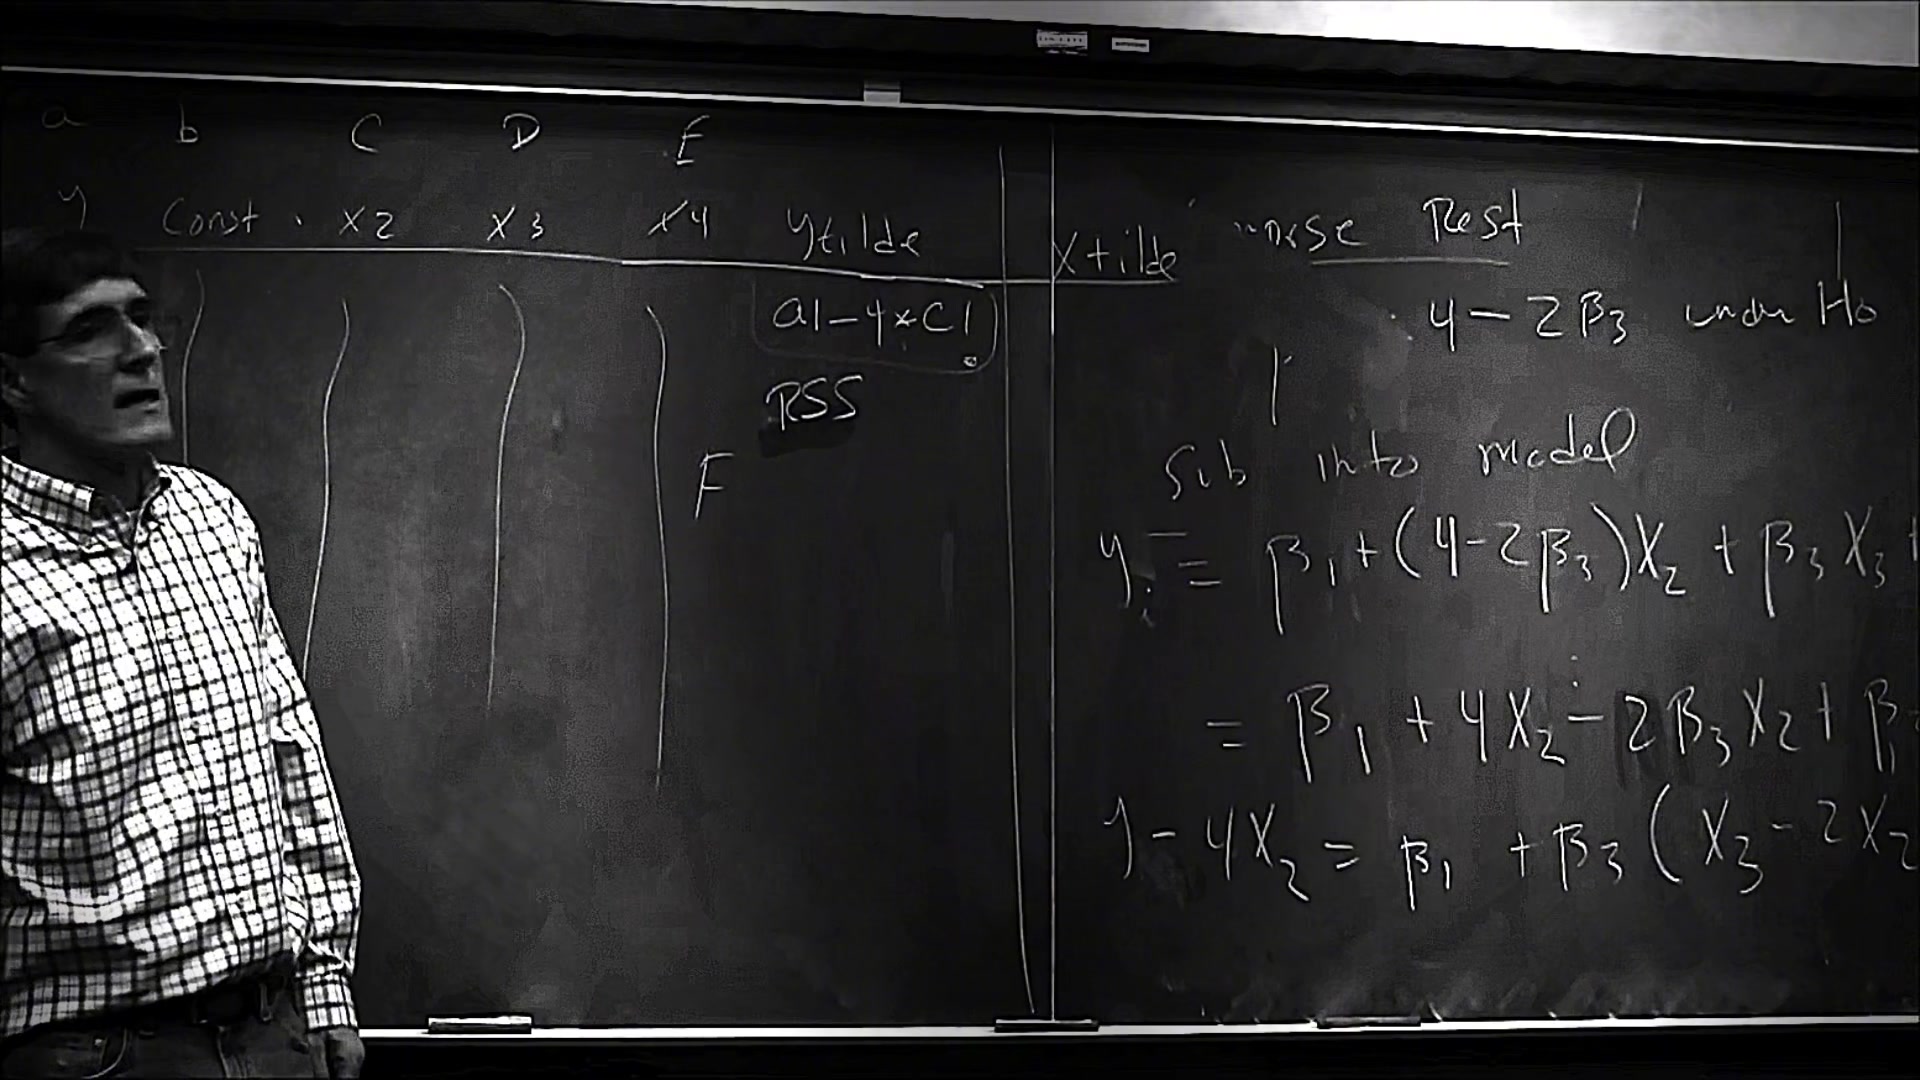 a b C D E
y Const. X2 X3 X4 ytilde X tilde
a1-4*C1
RSS
F
Rest
4-2β3 under H0
Sub into model
yi = β1+(4-2β3)X2 + β3X3 +
= β1 + 4X2 - 2β3X2 + β
y-4X2 = β1 + β3(X3-2X2